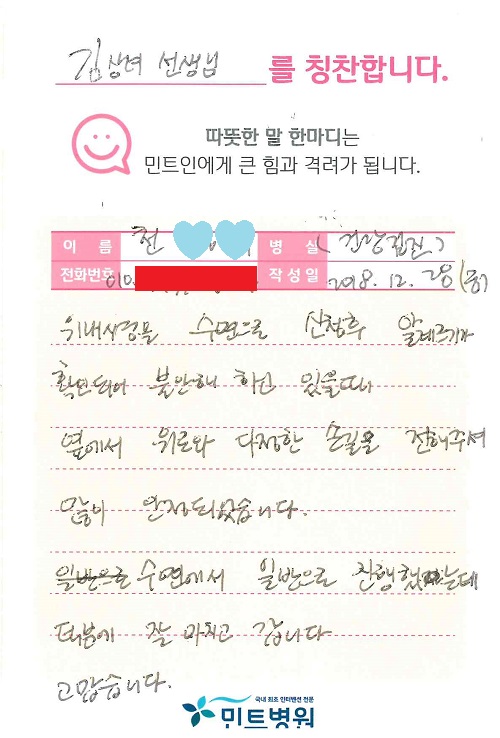 김상녀 선생님 를 칭찬합니다.
따뜻한 말 한마디는
민트인에게 큰 힘과 격려가 됩니다.
이 름 천 병 실 (건강검진)
전화번호 010. 작성일 2018. 12. 28(금)
위내시경을 수면으로 신청후 알레르기가
확인되어 불안해 하고 있을때
옆에서 위로와 다정한 손길을 전해주셔
많이 안정되었습니다.
일반으로 수면에서 일반으로 진행했는데
덕분에 잘 마치고 갑니다
고맙습니다.
국내 최초 인터벤션 전문
민트병원